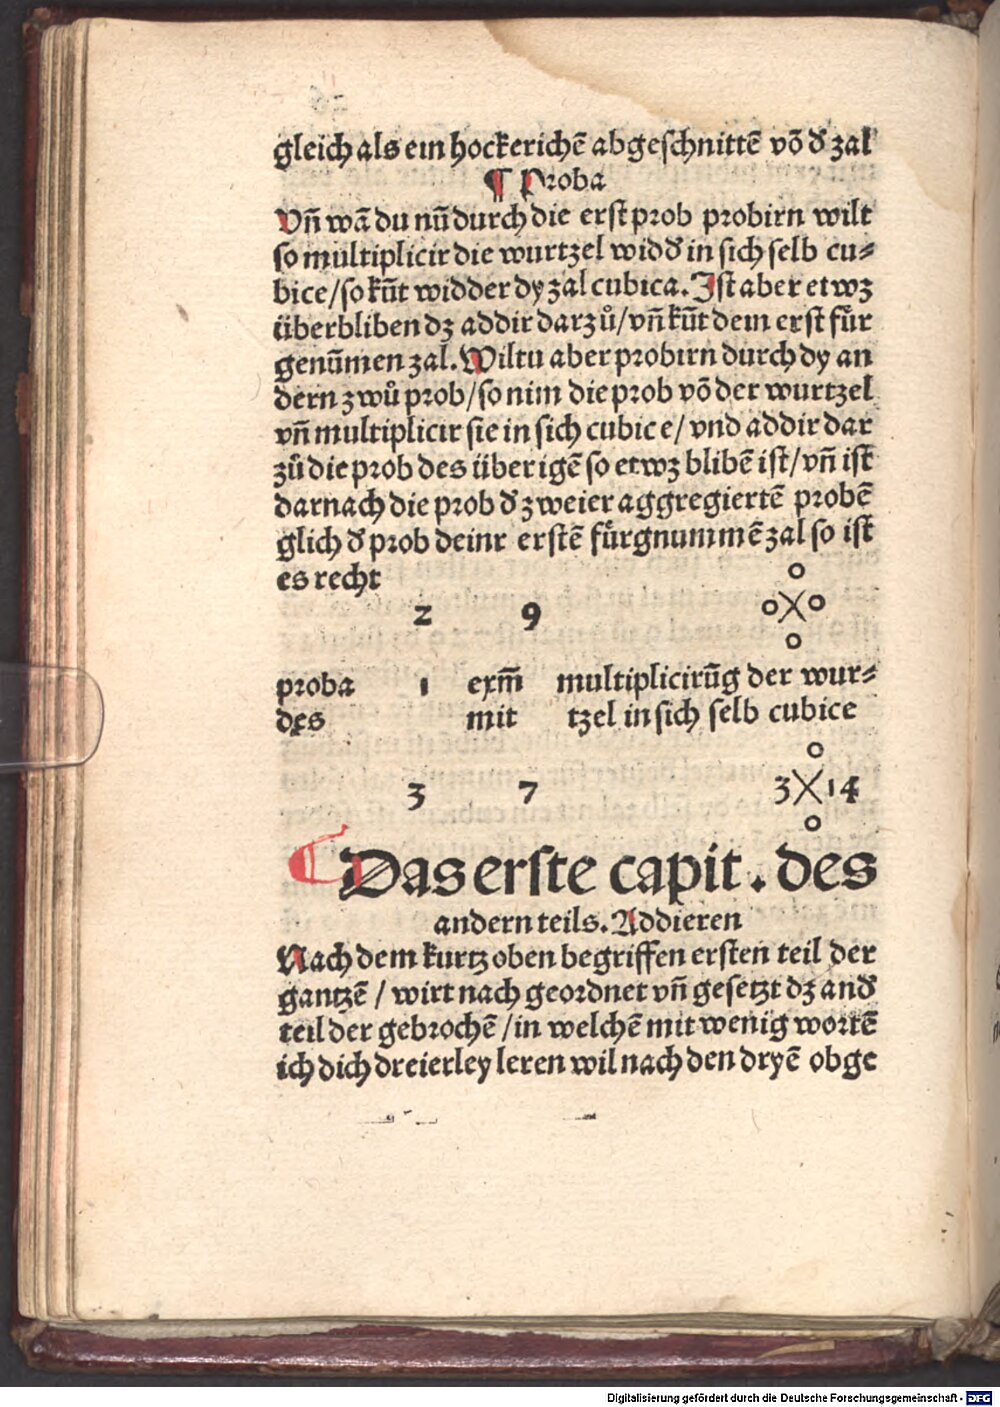 gleich als ein hockerichē abgeschnittē vō d̕ zal
¶ Proba
Vñ wā du nū durch die erst prob probirn wilt
so multiplicir die wurtzel widd̕ in sich selb cu⸗
bice/so kūt widder dy zal cubica. Ist aber etwz
überbliben dz addir darzů/vñ kūt dem erst für
genūmen zal. Wiltu aber probirn durch dy an
dern zwů prob/so nim die prob vō der wurtzel
vñ multiplicir sie in sich cubice/ vnd addir dar
zů die prob des überigē so etwz blibē ist/vñ ist
darnach die prob d̕ zweier aggregiertē probē
glich d̕ prob deinr erstē fürgnummē zal so ist
es recht
2 9 0 0 0 0
proba 1 exm̄ multiplicirūg der wur⸗
des mit tzel in sich selb cubice
3 7 0 3 14 0
Das erste capit. des
andern teils. Addieren
Nach dem kurtz oben begriffen ersten teil der
gantzē / wirt nach geordnet vñ gesetzt dz and̕
teil der gebrochē /in welchē mit wenig wortē
ich dich dreierley leren wil nach den dryē obge
Digitalisierung gefördert durch die Deutsche Forschungsgemeinschaft - DFG